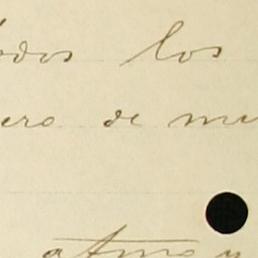 odos los
ero de me
atmo y